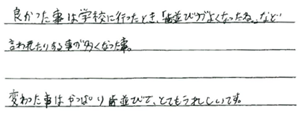 良かった事は学校に行ったとき、「歯並びがよくなったね。」など
言われたりする事が多くなった事。
変わった事はやっぱり歯並びで、とてもうれしいです。